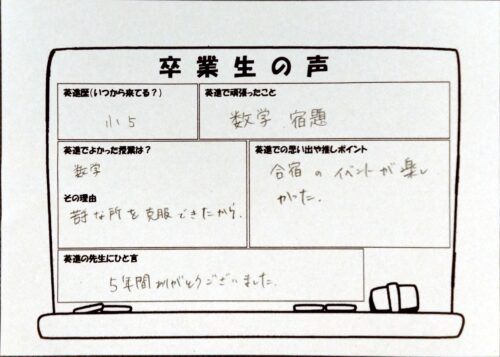 卒業生の声
英進歴(いつから来てる?)
小5
英進で頑張ったこと
数学 宿題
英進でよかった授業は?
数学
その理由
苦手な所を克服できたから.
英進での思い出や推しポイント
合宿のイベントが楽し
かった.
英進の先生にひと言
5年間ありがとうございました.